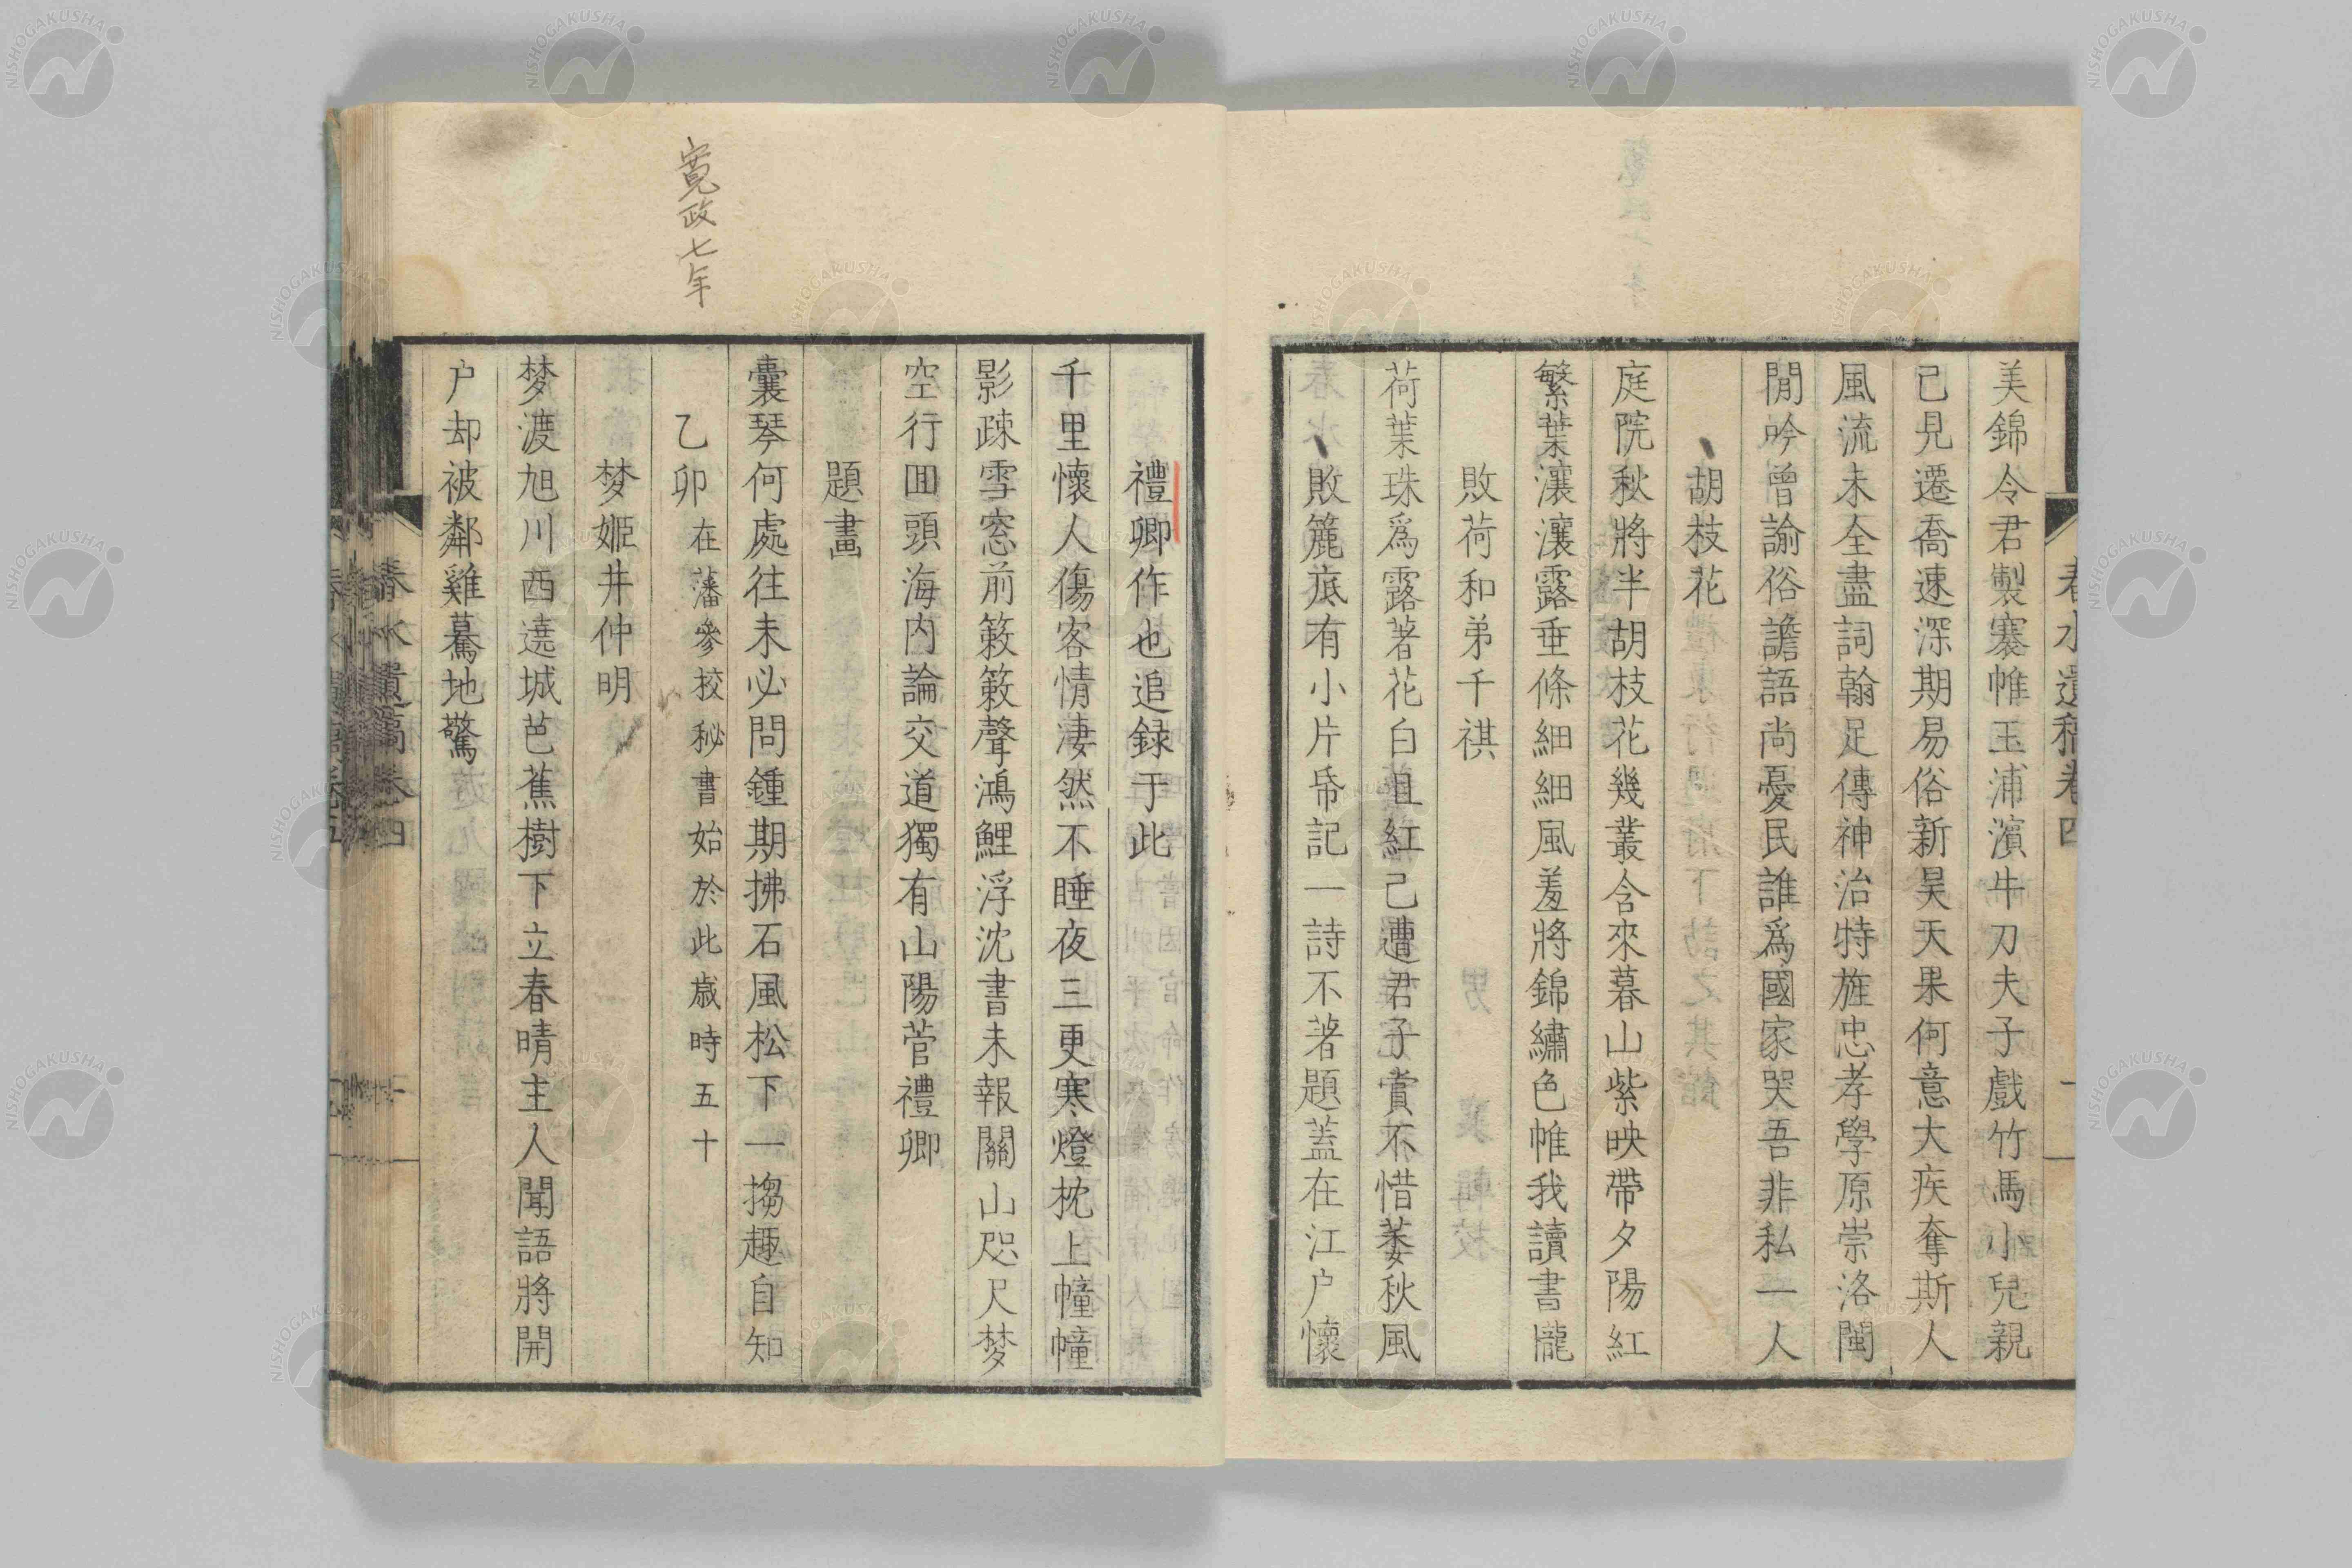 美錦令君製褰帷玉浦濵牛刀夫子戲竹馬小兒親
已見遷喬速深期易俗新昊天果何意大疾奪斯人
風流未全盡詞翰足傳神治特旌忠孝學原崇洛閩
閒吟曾諭俗譫語尚憂民誰爲國家哭吾非私一人
胡枝花
庭院秋將半胡枝花幾叢含來暮山紫映帶夕陽紅
繁葉瀼瀼露垂條細細風羞將錦繡色帷我讀書櫳
敗荷和弟千祺
荷葉珠爲露著花白且紅已遭君子賞不惜萎秋風
敗簏底有小片帋記一詩不著題蓋在江戸懷
春水遺稿卷四
寛政七年
禮卿作也追録于此
千里懷人傷客情淒然不睡夜三更寒燈枕上幢幢
影疎雪窓前簌簌聲鴻鯉浮沈書未報關山咫尺梦
空行囬頭海内論交道獨有山陽菅禮卿
題畫
囊琴何處往未必問鍾期拂石風松下一搊趣自知
乙卯 在藩參挍秘書始於此歳時五十
梦姬井仲明
梦渡旭川西遶城芭蕉樹下立春晴主人聞語將開
户却被鄰雞驀地驚
春水遺稿卷四
NISHOGAKUSHA